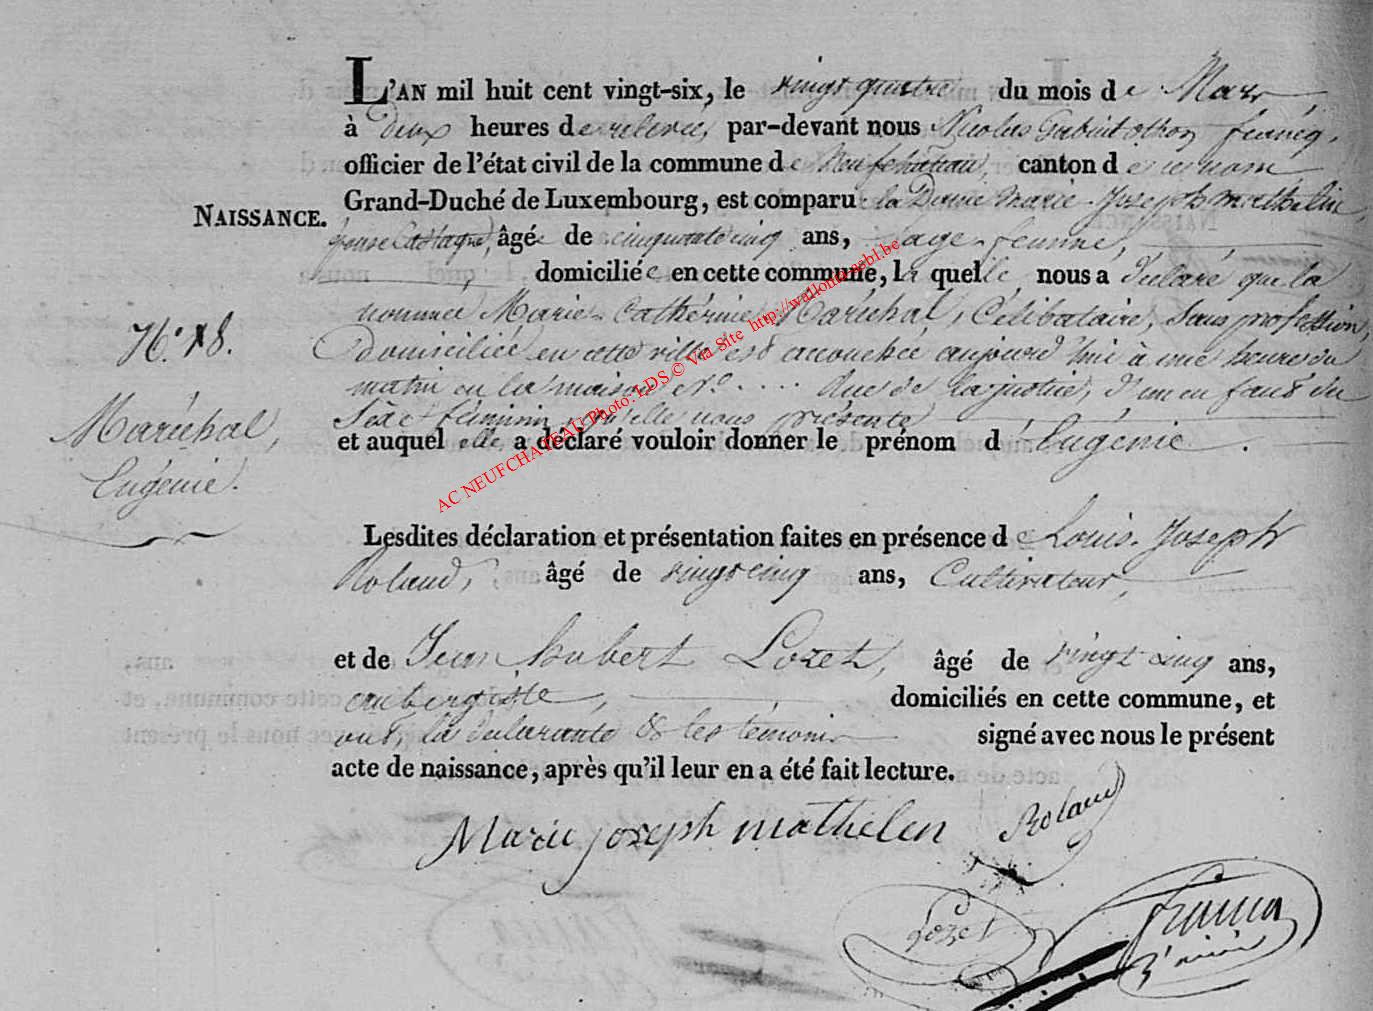 L'AN mil huit cent vingt-six, le vingt quatre du mois de Mars,
à deux heures de relevée, par-devant nous Nicolas
officier de l'état civil de la commune de Neufchateau, canton de ce nom,
Grand-Duché de Luxembourg, est comparu la Dame Marie-Joseph Mathelin,
NAISSANCE.
épouse âgée de cinquante cinq ans, sage-femme,
domiciliée en cette commune, laquelle nous a déclaré que la
nommée Marie-Catherine Maréchal, Célibataire, sans profession,
N.° 18.
domiciliée en cette ville est accouchée aujourd'hui à une heure du
matin en la maison N.° .... Rue de la justice, d'un enfant du
Sexe féminin qu'elle nous présente
Maréchal,
et auquel elle a déclaré vouloir donner le prénom d'Eugénie.
Eugénie.
Lesdites déclaration et présentation faites en présence de Louis-Joseph
Roland, âgé de vingt cinq ans, Cultivateur,
et de Jean hubert Lozet, âgé de vingt cinq ans,
aubergiste, domiciliés en cette commune, et
ont, la déclarante & les témoins signé avec nous le présent
acte de naissance, après qu'il leur en a été fait lecture.
Marie joseph mathelen Roland
Lozet
AC NEUFCHATEAU Photo: LDS © Via Site http://wallonia-asbl.be